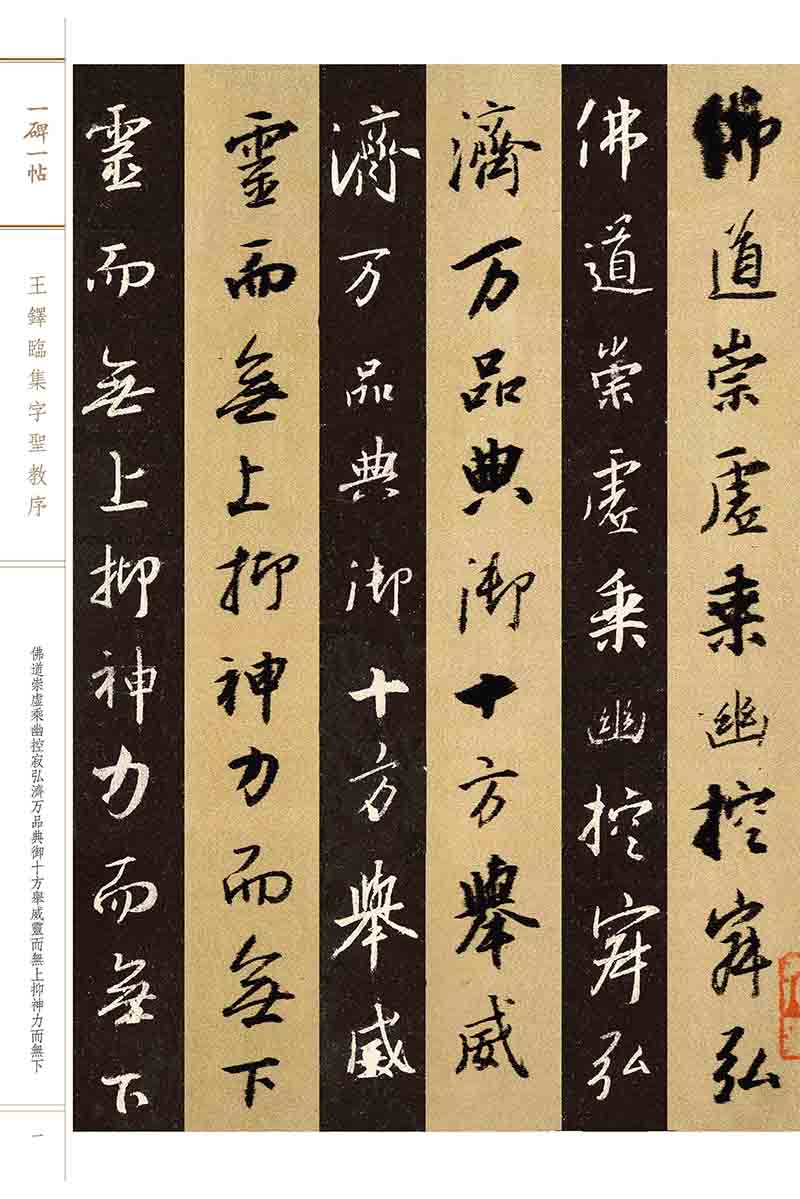 佛道崇虛乘幽控寂弘
佛道崇虛乘幽控寂弘
濟万品典御十方舉威
濟万品典御十方舉威
靈而無上抑神力而無下
靈而無上抑神力而無下
一碑一帖
王鐸臨集字聖教序
佛道崇虛乘幽控寂弘濟万品典御十方舉威靈而無上抑神力而無下
一